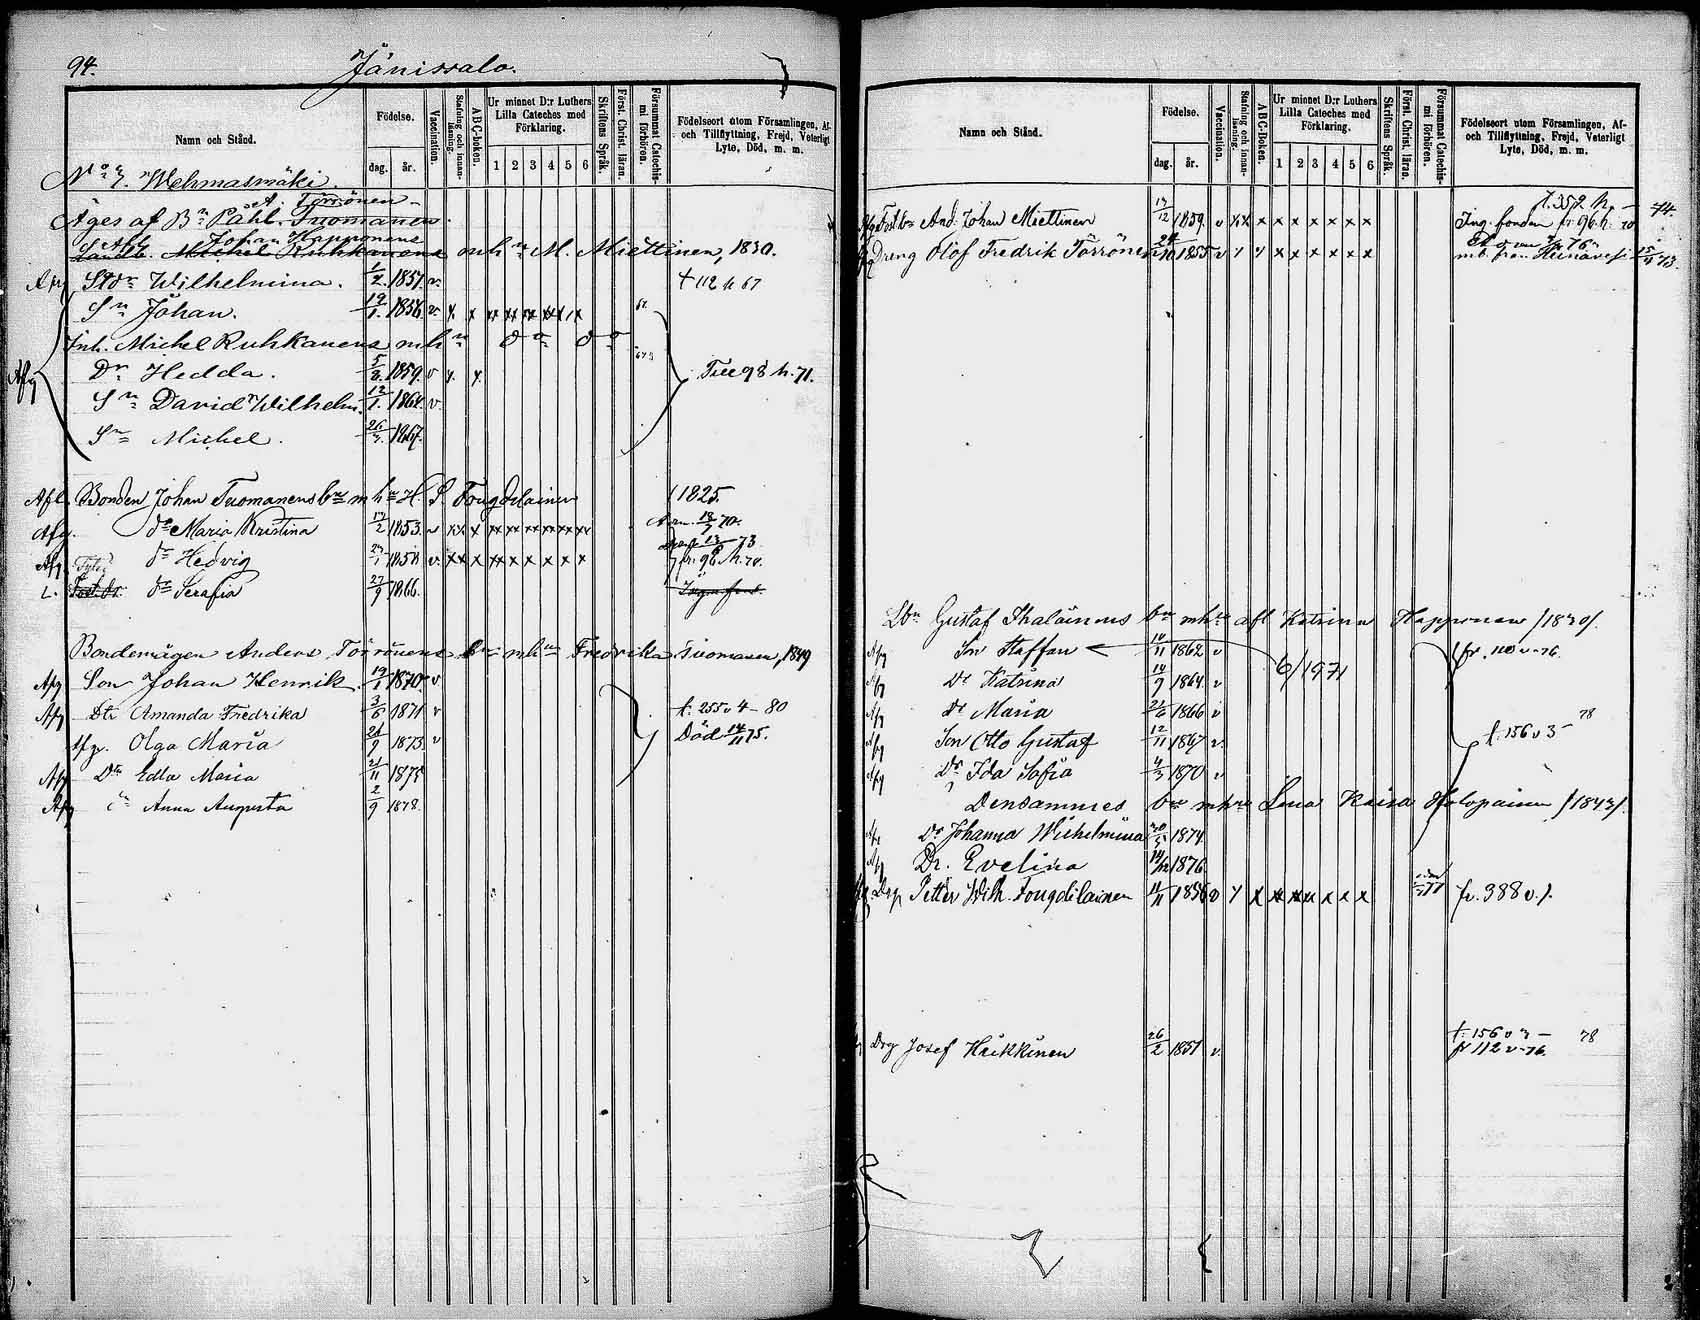 94.
Jänissalo.
Namn och Stånd.
Födelse.
dag.
år.
Vaccination.
Stafning och innanläsning.
ABC-boken.
Ur minnet D:r Luthers Lilla Cateches med Förklaring.
1 2 3 4 5 6
Skriftens Språk.
Först. Christ. läran.
Försummat Catechismi förhören.
Födelseort utom Församlingen, Af- och Tillflyttning, Frejd, Veterligt Lyte, Död, m. m.
No 7. Wehmasmäki.
A. Törrönen
Äges af Bn Påhl. Tuomanen.
Johan Happonens
Michel Ruhkanens mhn M. Miettinen, 1830.
Wilhelmina. 1851. v. 112 h 67
Sn Johan. 19/1. 1856. v. x x xx xx xx xx x x
Inh. Michel Ruhkanens mhn do do
Afg Dr Hedda. 5/8. 1859. v x. x. Till 98 h. 71.
Sn David Wilhelm. 12/1. 1864. v.
Sn Michel. 1867.
Afl. Bonden Johan Tuomanens bn m hn H. S. Fougdelainen 1825.
Afg. dr Maria Kristina 17/2 1853. v xx x xx xx xx xx xx xx
Afg. dr Hedvig v. xx x xx x x x x x fr. 98 h. 70.
L. dr Serafia 27/9 1866.
Bondemågen Anders Törrönens bn mhn Fredrika Tuomanen, 1849
Afg Son Johan Henrik. 19/1 1870 v
Afg Dtr Amanda Fredrika 3/6 1871 v t. 255 v 4 - 80
Afg. Olga Maria 1873 v Död 14/11 75.
Afg Dtr Edla Maria 21/11 1875
Afg Anna Augusta 2/9 1878.
Namn och Stånd.
Födelse.
dag.
år.
Vaccination.
Stafning och innanläsning.
ABC-boken.
Ur minnet D:r Luthers Lilla Cateches med Förklaring.
1 2 3 4 5 6
Skriftens Språk.
Först. Christ. läran.
Försummat Catechismi förhören.
Födelseort utom Församlingen, Af- och Tillflyttning, Frejd, Veterligt Lyte, Död, m. m.
t. 352 h. - 74.
And: Johan Miettinen 17/12 1859. v xx x x x x x x x
Dreng Olof Fredrik Törrönen 1855 v x x x x x x x x
Gustaf Ihalainens bn mhn afl Katrina Happonen /1830/.
Afg Son Staffan 10/11 1862 v fr. 110 v-76.
6/1971
Afg Dr Katrina 10/9 1864. v
Afg Dr Maria 21/6 1866 v
Afg Son Otto Gustaf 12/11 1867 v. t. 156 v 3 - 78
Afg Dr Ida Sofia 4/3 1870 v
Densammes bn mhn Lena Kaisa Holopainen /1843/.
Dr Johanna Wilhelmina 1874
Afg Dr. Evelina 14/12 1876
Petter Wilh. Fougdelainen 11/11 1856 v x x xx xx x x x 77 fr. 388 v. 1.
t. 156 v 3 - 78
Drg Josef Häikkinen 26/2 1851 v. fr 112 v-76.